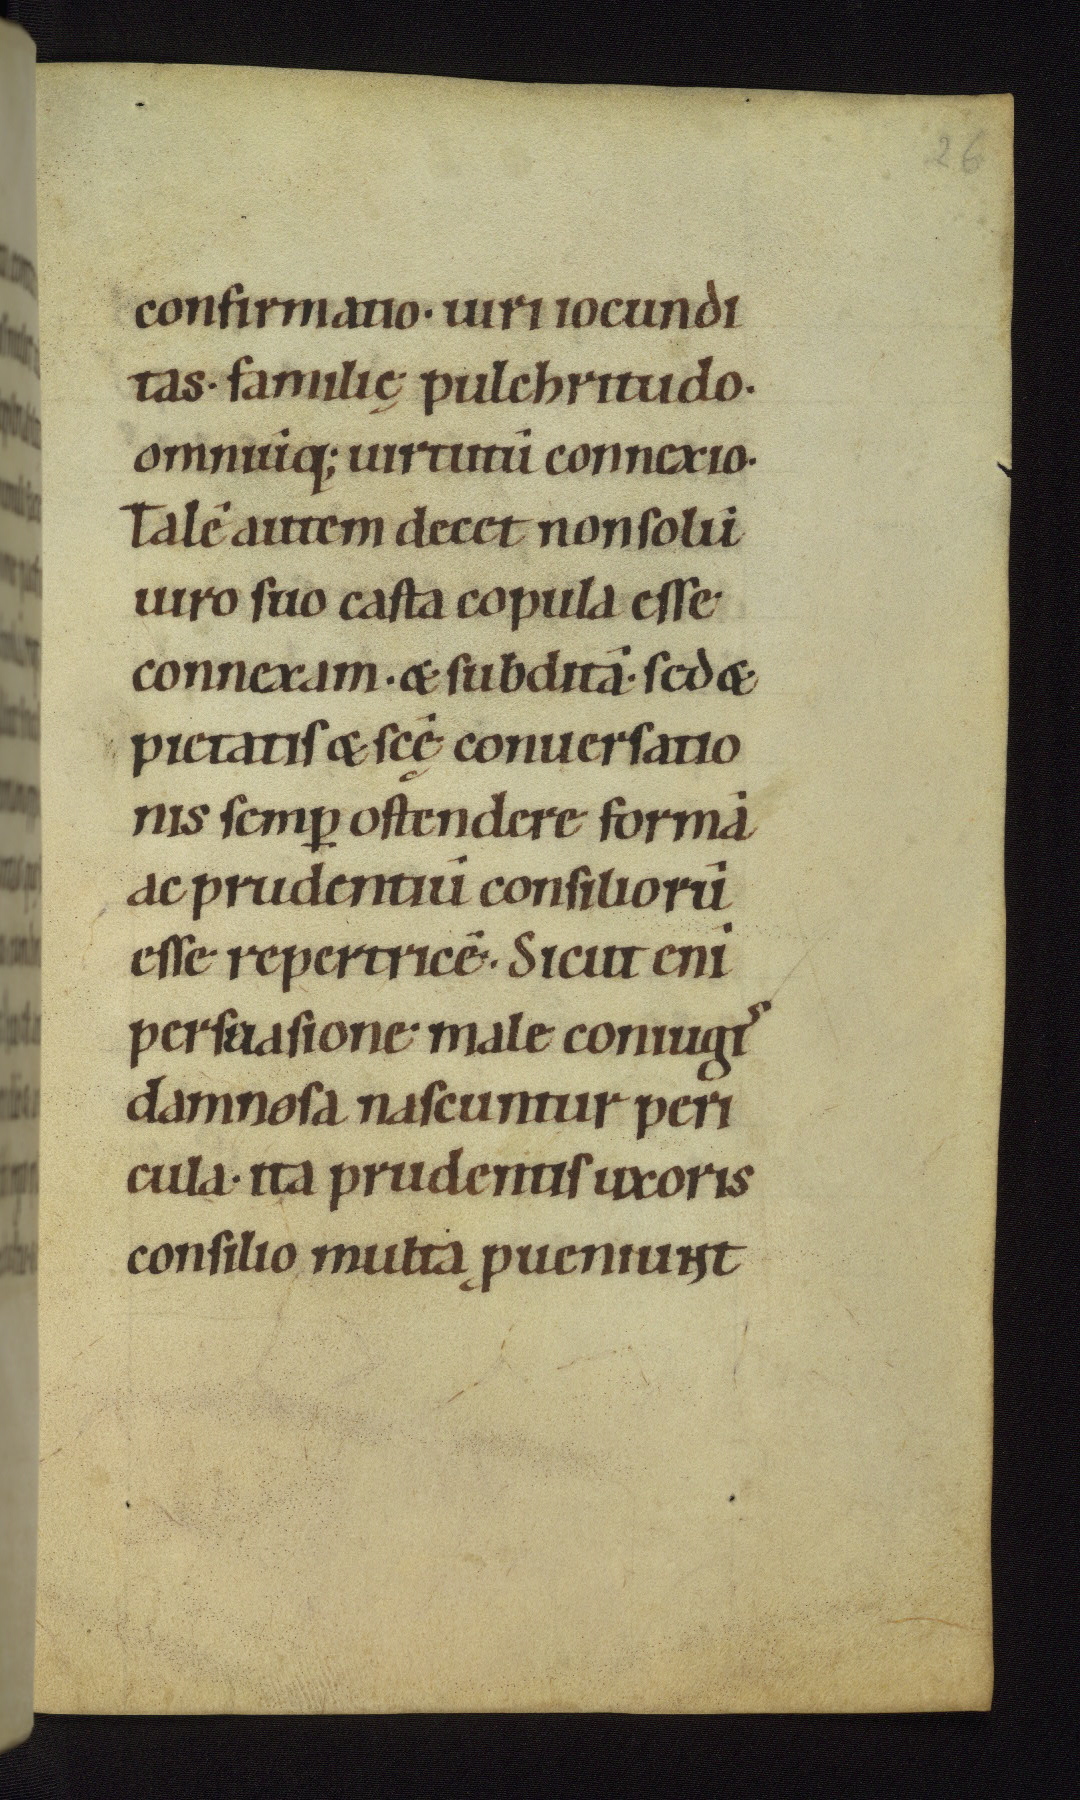 26
confirmatio· uiri iocundi
tas· familię pulchritudo·
omniūq; uirtutū connexio·
Talē autem decet non ſolū
uiro ſuo caſta copula eſſe
connexam· & ſubditā· ſed &
pietatiſ & ſcę̄ conuerſatio
nis ſemꝑ oſtendere formā
ac prudentiū conſiliorū
eſſe repertricē· Sicut eni̅
perſuaſione male coniugiˢ
damnoſa naſcuntur peri
cula· ita prudentiſ uxoris
conſilio multa ꝓueniunt